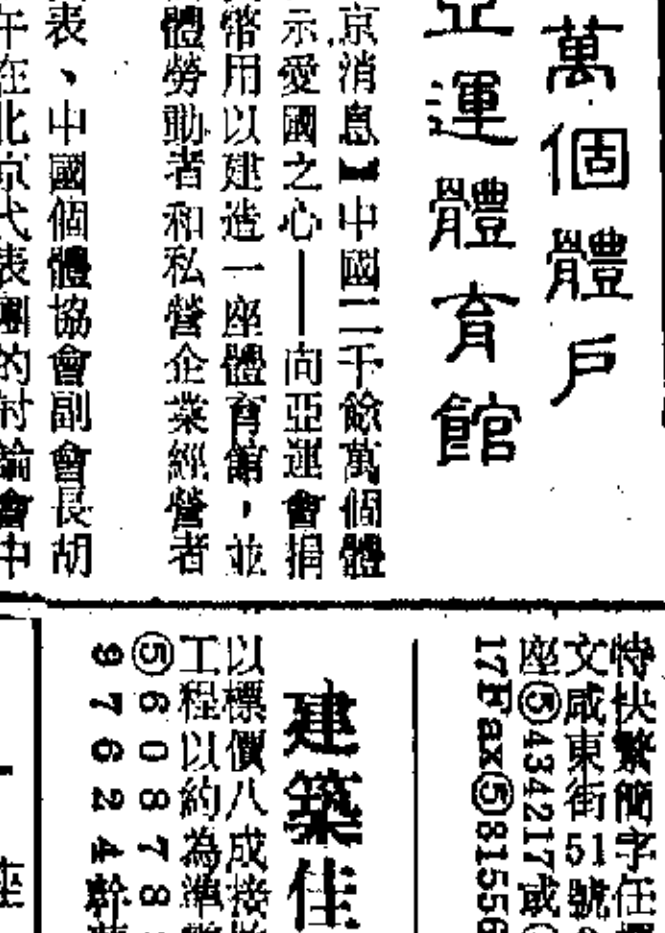 萬個體戶
亞運體育館
京消息】中國二千餘萬個體
示愛國之心——向亞運會捐
幣用以建造一座體育館，並
體勞動者和私營企業經營者
表、中國個體協會副會長胡
午在北京代表團的討論會中
特快繁簡字任
文咸東街51號
座⑤434217或
17Fax⑤81556
建築佳
以標價八成接
工程以約為準
⑤60878
97624幹
座